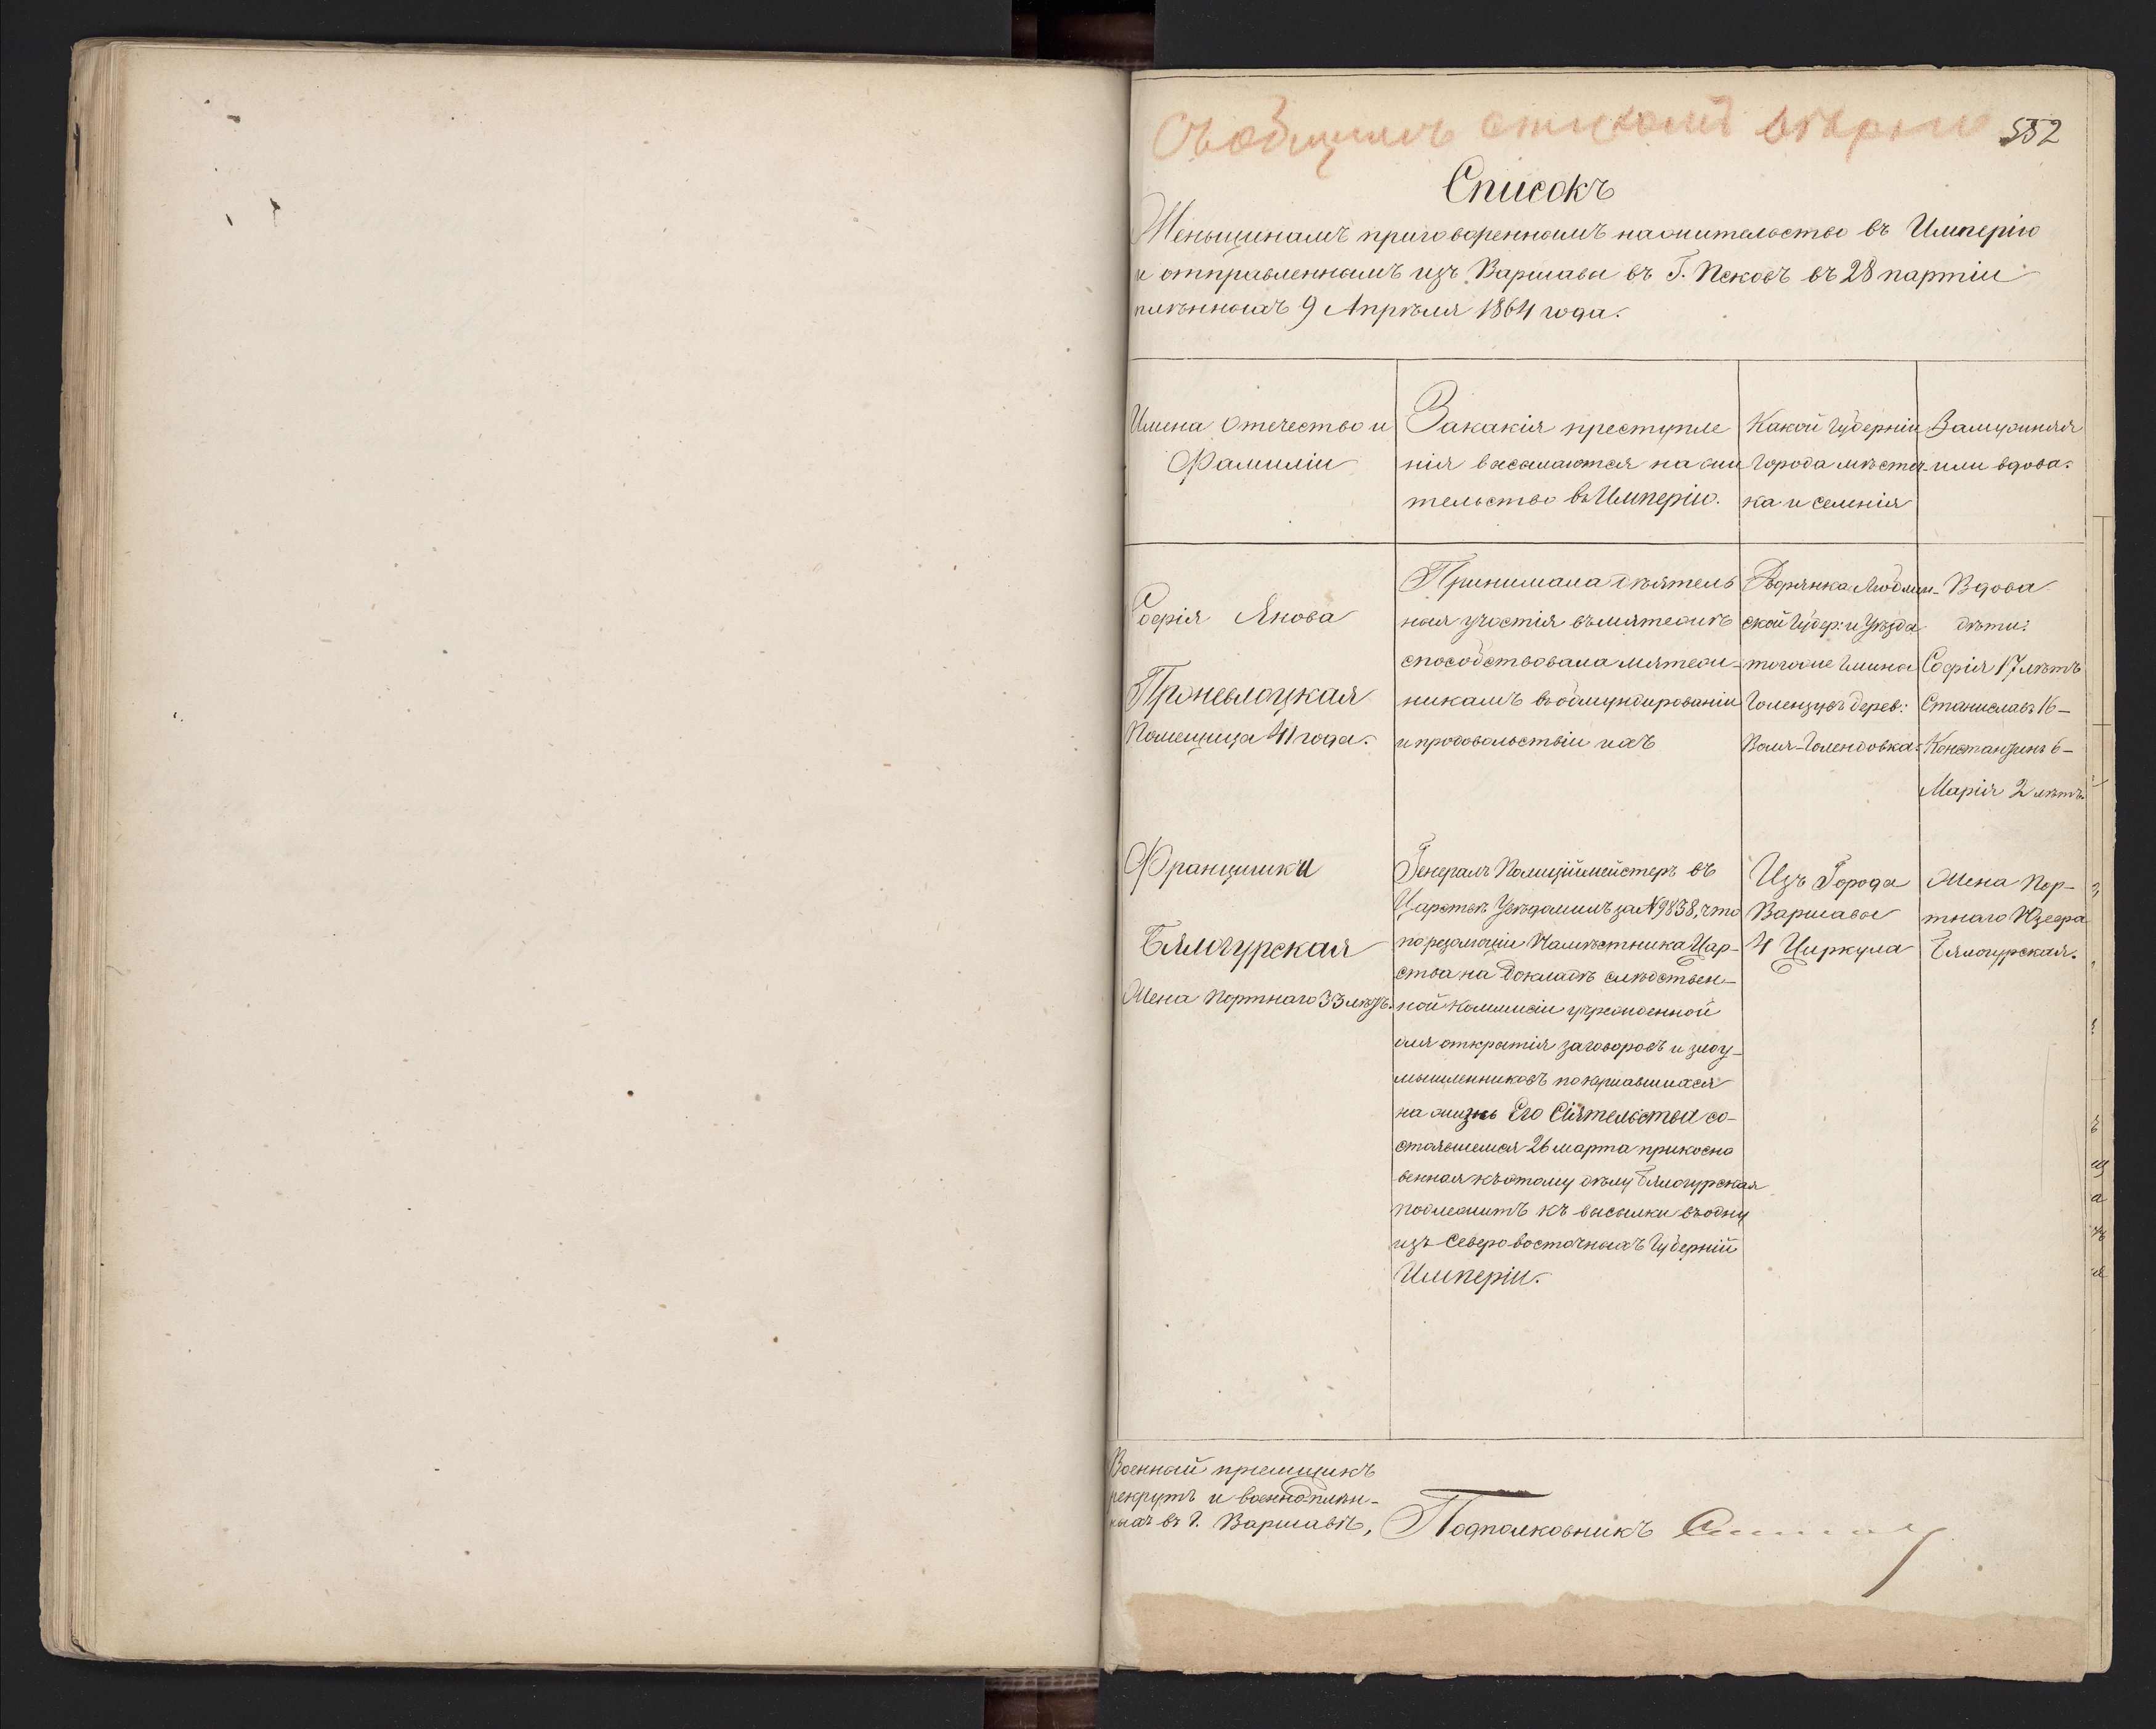 552
Списокъ
Женьщинамъ приговореннымъ на жительство въ Имперію
и отправленнымъ изъ Варшавы въ Г. Псковъ въ 28 партіи
плѣнныхъ 9 Апрѣля 1864 года.
Имена Отечество и
Фамиліи
За какія преступле
нія высылаются на жи
тельство въ Имперію.
Какой Губерніи
города мѣстеч-
ка и селенія
Замужняя
или вдова.
Софія Янова
Проневлоцкая
Помещица 41 года.
Принимала дѣятель
ныя участія въ мятежѣ
способствовала мятеж-
никамъ въ обмундированіи
и продовольствіи ихъ
Дворянка Люблин-
ской Губер: и Уѣзда
тогоже Гмина
Голензувъ дерев:
Воля-Голендовка.
Вдова
дѣти:
Софія 17 лѣтъ
Станиславъ 16 –
Константинъ 6 –
Марія 2 лѣтъ.
Францишки
Бялогурская
Жена Портнаго 33 лѣтъ.
Генералъ Полиціймейстеръ въ
Царствѣ Увѣдомилъ за № 9838, что
по резолюціи Намѣстника Цар-
ства на докладѣ слѣдствен-
ной Коммисіи учрежденной
для открытія заговоровъ и злоу-
мышленниковъ покушавшихся
на жизнь Его Сіятельства со-
стоявшемся 26 марта прикосно
венная къ этому дѣлу Бялогурская
подлежитъ къ высылки въ одну
изъ Северо восточныхъ Губерній
Имперіи.
Изъ Города
Варшавы
4 Циркула
Жена Пор-
тнаго Юзефа
Бялогурская.
Военный пріемщикъ
рекрутъ и военноплѣн-
ныхъ въ г. Варшавѣ, Подполковникъ